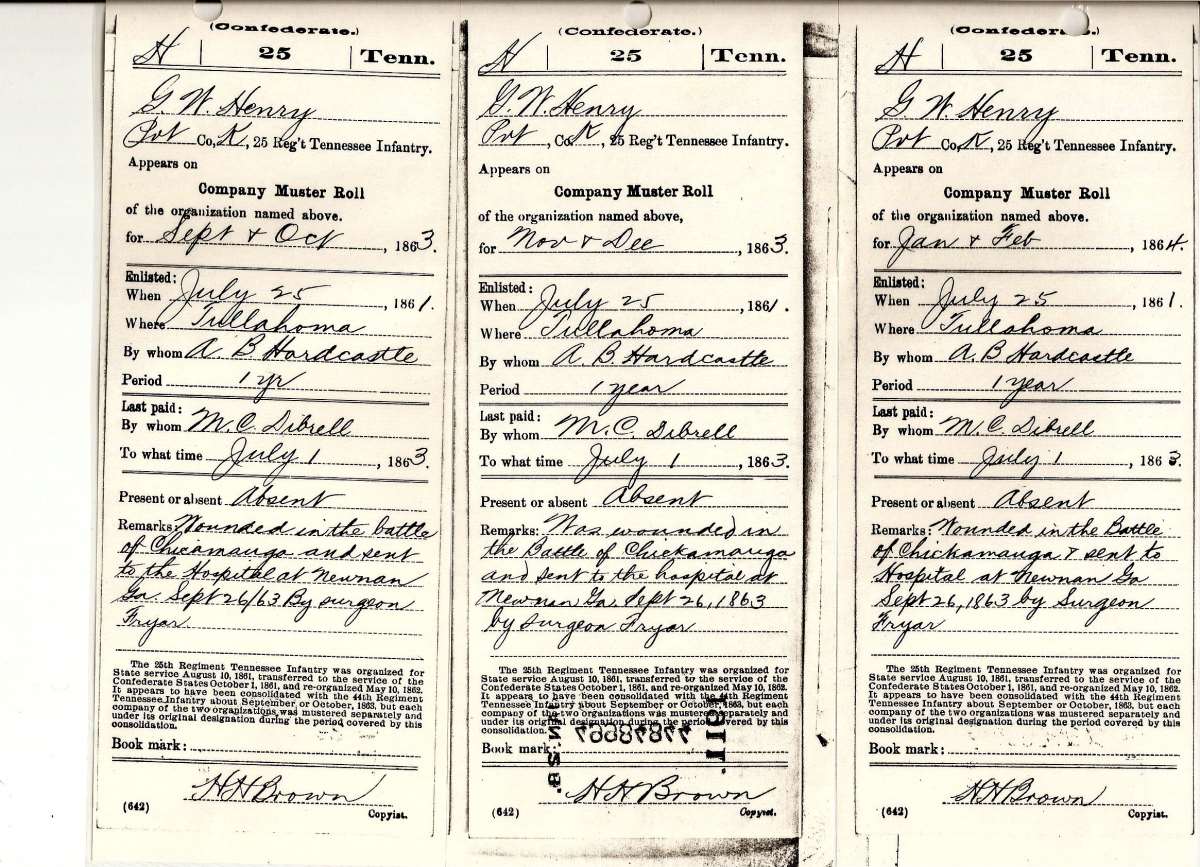 (Confederate.)
H | 25 | Tenn.
G. W. Henry
Pvt Co, K, 25 Reg't Tennessee Infantry.
Appears on
Company Muster Roll
of the organization named above.
for Sept & Oct, 1863.
Enlisted:
When July 25, 1861.
Where Tullahoma
By whom A. B. Hardcastle
Period 1 yr
Last paid:
By whom M. C. Dibrell
To what time July 1, 1863.
Present or absent Absent
Remarks: Wounded in the battle
of Chicamauga and sent
to the Hospital at Newnan
Ga. Sept 26/63 By surgeon
Fryar
The 25th Regiment Tennessee Infantry was organized for
State service August 10, 1861, transferred to the service of the
Confederate States October 1, 1861, and re-organized May 10, 1862.
It appears to have been consolidated with the 44th Regiment
Tennessee Infantry about September or October, 1863, but each
company of the two organizations was mustered separately and
under its original designation during the period covered by this
consolidation.
Book mark:
H H Brown
(642) Copyist.
(Confederate.)
H | 25 | Tenn.
G. W. Henry
Pvt, Co. K, 25 Reg't Tennessee Infantry.
Appears on
Company Muster Roll
of the organization named above,
for Nov & Dec, 1863.
Enlisted:
When July 25, 1861.
Where Tullahoma
By whom A. B. Hardcastle
Period 1 year
Last paid:
By whom M. C. Dibrell
To what time July 1, 1863.
Present or absent Absent
Remarks: Was wounded in
the Battle of Chickamauga
and sent to the hospital at
Newnan Ga. Sept 26, 1863
by surgeon Fryar
The 25th Regiment Tennessee Infantry was organized for
State service August 10, 1861, transferred to the service of the
Confederate States October 1, 1861, and re-organized May 10, 1862.
It appears to have been consolidated with the 44th Regiment
Tennessee Infantry about September or October, 1863, but each
company of the two organizations was mustered separately and
under its original designation during the period covered by this
consolidation.
Book mark:
H H Brown
(642) Copyist.
(Confederate.)
H | 25 | Tenn.
G W. Henry
Pvt Co. K, 25 Reg't Tennessee Infantry.
Appears on
Company Muster Roll
of the organization named above.
for Jan & Feb, 1864.
Enlisted:
When July 25, 1861.
Where Tullahoma
By whom A. B. Hardcastle
Period 1 year
Last paid:
By whom M. C. Dibrell
To what time July 1, 1863.
Present or absent Absent
Remarks: Wounded in the Battle
of Chickamauga & sent to
Hospital at Newnan Ga
Sept 26, 1863 by Surgeon
Fryar
The 25th Regiment Tennessee Infantry was organized for
State service August 10, 1861, transferred to the service of the
Confederate States October 1, 1861, and re-organized May 10, 1862.
It appears to have been consolidated with the 44th Regiment
Tennessee Infantry about September or October, 1863, but each
company of the two organizations was mustered separately and
under its original designation during the period covered by this
consolidation.
Book mark:
H H Brown
(642) Copyist.